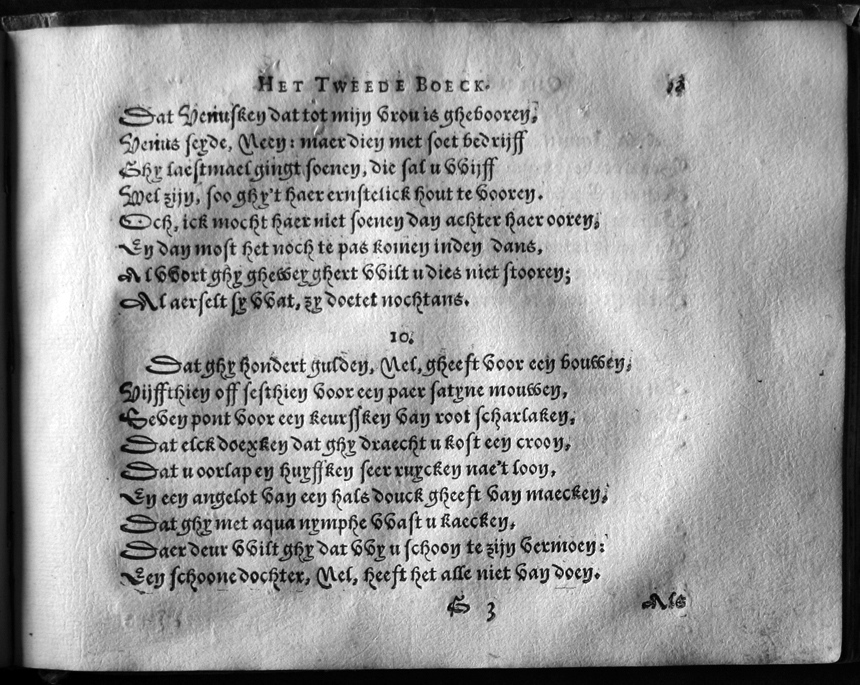 HET TWEEDE BOECK. 13
Dat Venusken dat tot mijn vrou is ghebooren,
Venus seyde, Neen: maer dien met soet bedrijff
Ghy laestmael gingt soenen, die sal u wijff
Wel zijn, soo ghy't haer ernstelick hout te vooren.
Och, ick mocht haer niet soenen dan achter haer ooren,
En dan most het noch te pas komen in den dans,
Al wort ghy gheweyghert wilt u dies niet stooren;
Al aerselt sy wat, zy doetet nochtans.
10.
Dat ghy hondert gulden, Nel, gheeft voor een bouwen,
Vijffthien off sesthien voor een paer satyne mouwen,
Seven pont voor een keursken van root scharlaken,
Dat elck doexken dat ghy draecht u kost een croon,
Dat u oorlapen huyffken seer ruycken nae't loon,
En een angelot van een hals douck gheeft van maecken,
Dat ghy met aqua nymphe wast u kaecken,
Daer deur wilt ghy dat wy u schoon te zijn vermoen:
Een schoone dochter, Nel, heeft het alle niet van doen.
G 3 Als